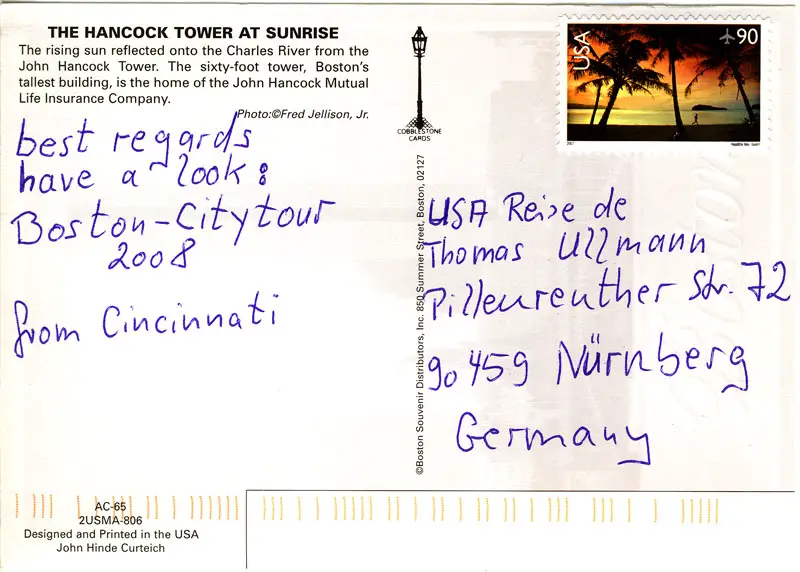 THE HANCOCK TOWER AT SUNRISE
The rising sun reflected onto the Charles River from the
John Hancock Tower. The sixty-foot tower, Boston's
tallest building, is the home of the John Hancock Mutual
Life Insurance Company.
Photo:©Fred Jellison, Jr.
best regards
have a look:
Boston-Citytour
2008
from Cincinnati
AC-65
2USMA-806
Designed and Printed in the USA
John Hinde Curteich
COBBLESTONE
CARDS
©Boston Souvenir Distributors, Inc. 850 Summer Street, Boston, 02127
USA
90
2007
USA Reise de
Thomas Ullmann
Pillenreuther Str. 72
90459 Nürnberg
Germany